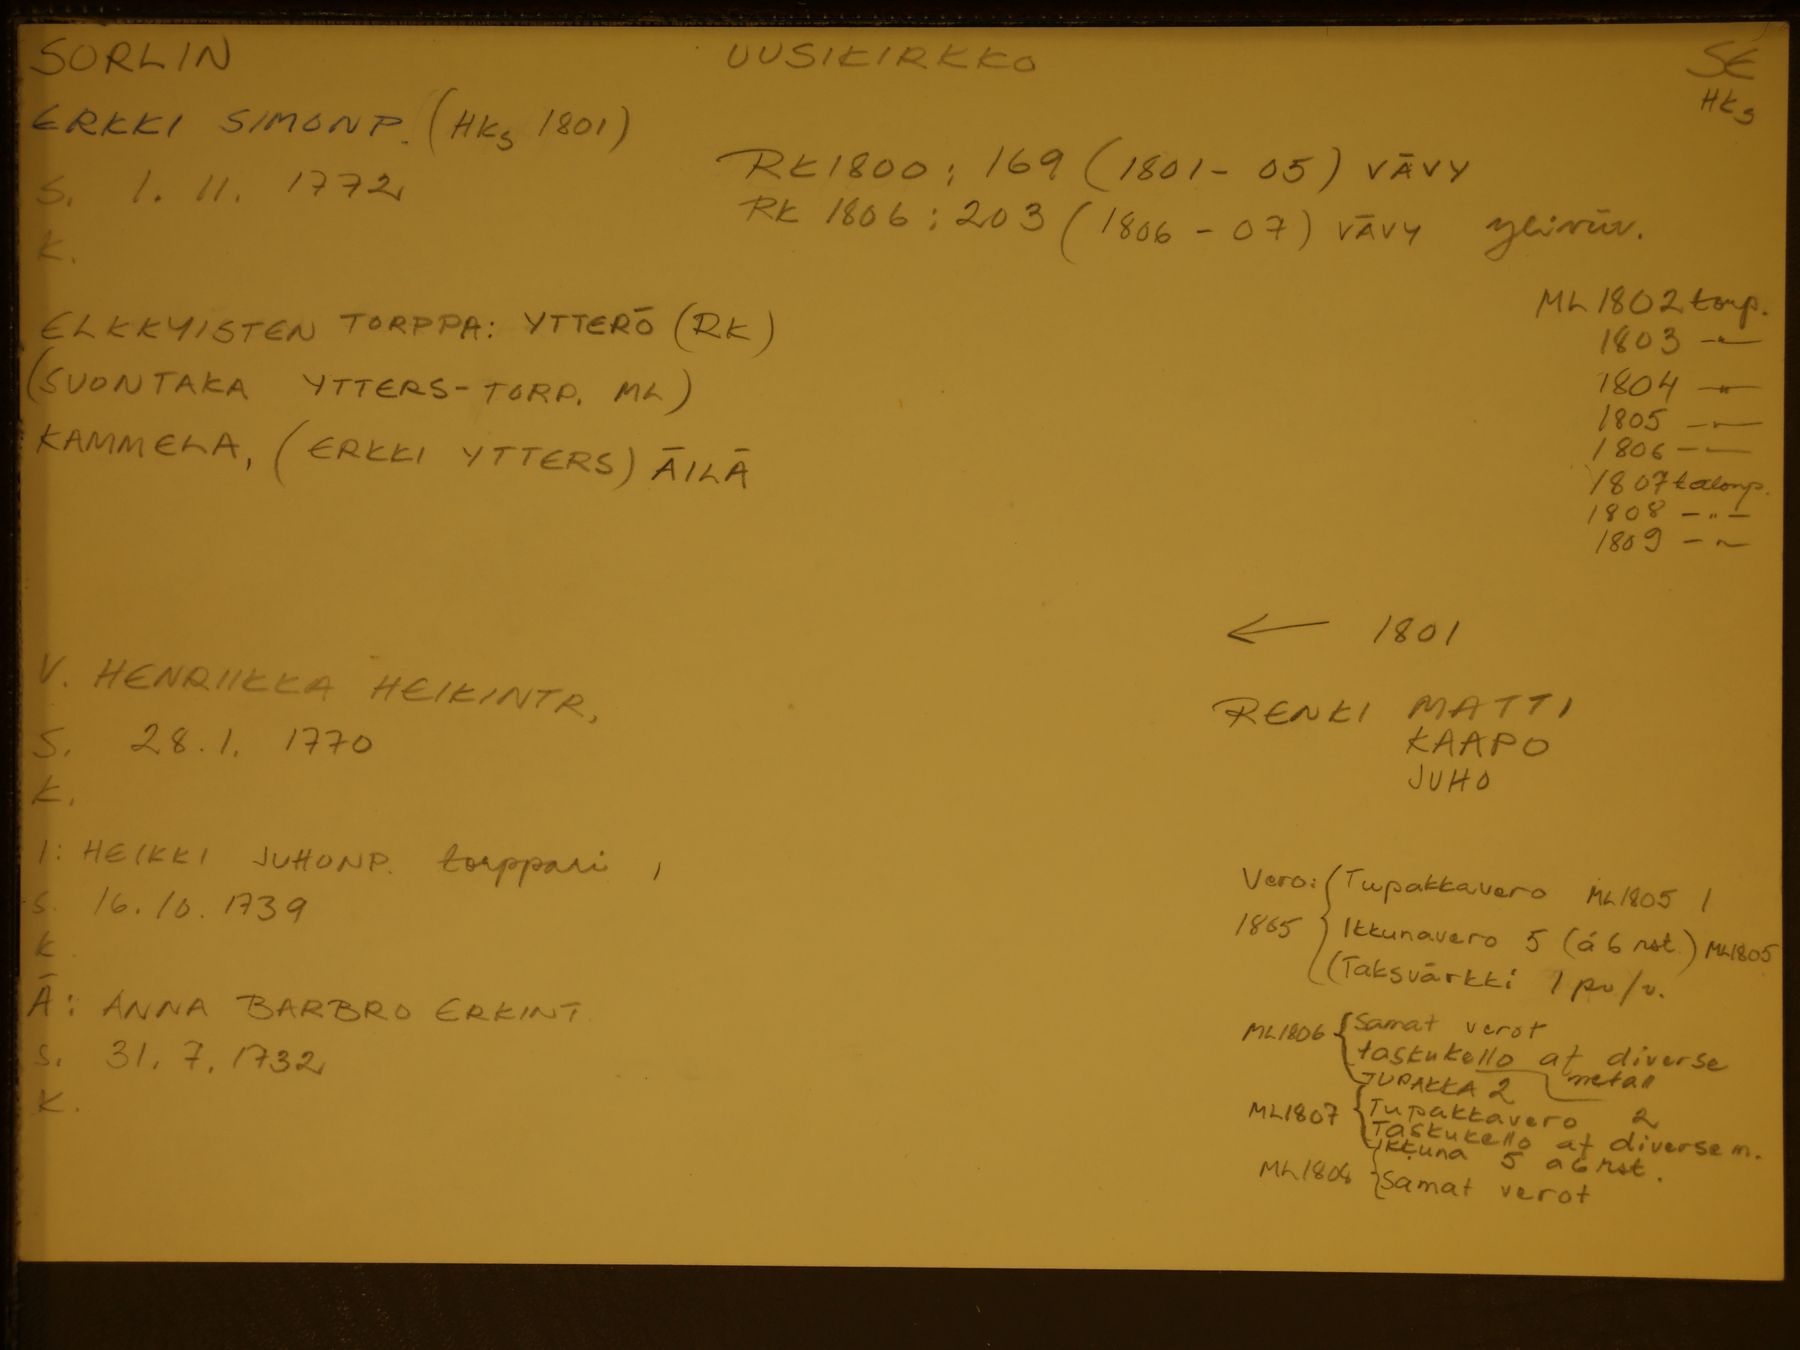 SORLIN
UUSIKIRKKO
SE
HKS
ERKKI SIMONP. (HKS 1801)
S. 1. 11. 1772
K.
RK1800; 169 (1801- 05) VÄVY
RK 1806; 203 (1806 - 07) VÄVY
ELKKYISTEN TORPPA: YTTERÖ (RK)
(SUONTAKA YTTERS-TORP. ML)
KAMMELA, (ERKKI YTTERS) ÄILÄ
ML 1802 torp.
1803 -"-
1804 -"-
1805 -"-
1806 -"-
1807 talonp.
1808 -"-
1809 -"-
← 1801
V. HENRIIKKA HEIKINTR.
S. 28.1. 1770
K.
RENKI MATTI
KAAPO
JUHO
I: HEIKKI JUHONP. torppari,
S. 16.10. 1739
K.
Ä: ANNA BARBRO ERKINT.
S. 31. 7. 1732
K.
Vero: Tupakkavero ML1805 1
1865 Ikkunavero 5 (á 6 rst.) ML1805
(Taksvärkki 1 pv/v.
ML1806 Samat verot
taskukello af diverse
metall
TUPAKKA 2
ML1807 Tupakkavero 2
Taskukello af diverse m.
Ikkuna 5 a 6 rst.
Samat verot